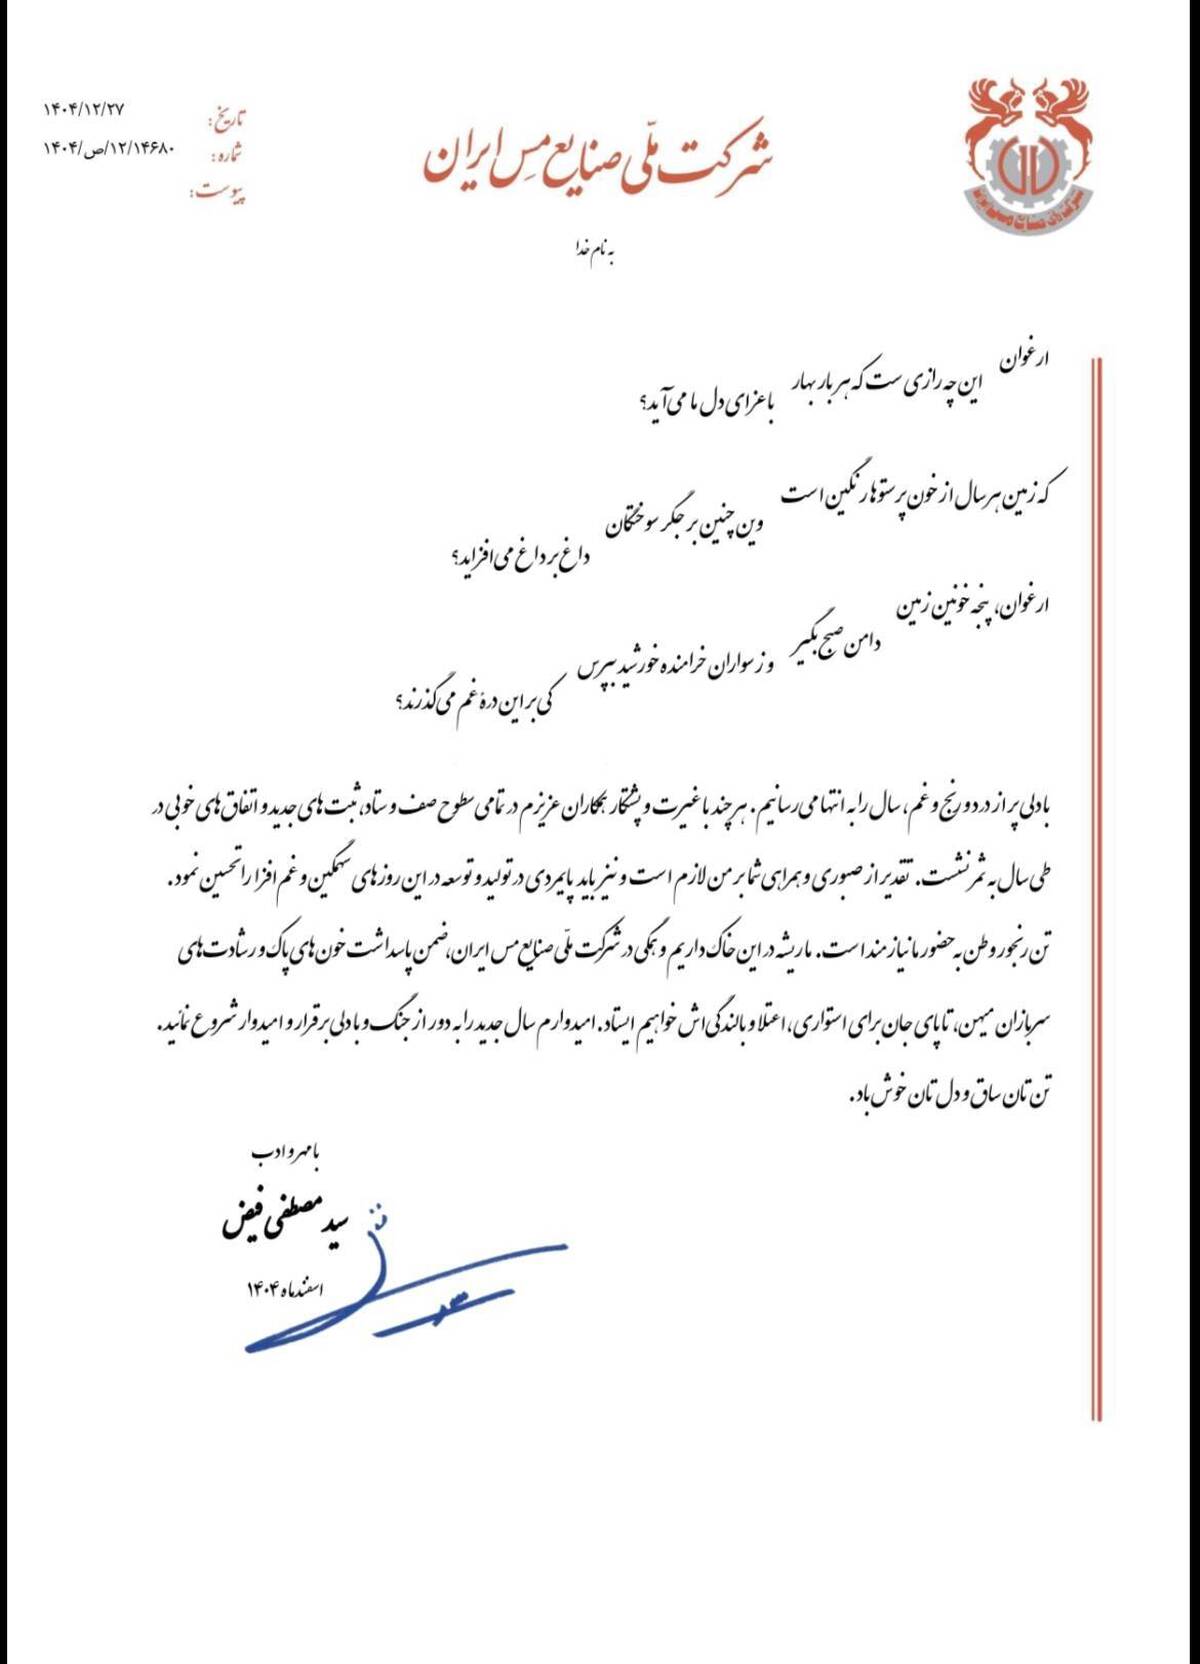 تاریخ: ۱۴۰۴/۱۲/۲۷
شماره: ۱۴۰۴/ص/۱۲/۱۴۶۸۰
پیوست:
شرکت ملّی صنایع مس ایران
به نام خدا
ارغوان
این چه رازی ست که هر بار بهار
با عزای دل ما می‌آید؟
که زمین هر سال از خون پرستوها رنگین است
وین چنین بر جگر سوختگان
داغ بر داغ می‌افزاید؟
ارغوان، پنجه خونین زمین
دامن صبح بگیر
وز سواران خرامنده خورشید بپرس
کی بر این درهٔ غم می‌گذرند؟
با دلی پر از درد و رنج و غم، سال را به انتها می‌رسانیم. هر چند با غیرت و پشتکار همکاران عزیزم در تمامی سطوح صف و ستاد، ثبت‌های جدید و اتفاق‌های خوبی در
طی سال به ثمر نشست. تقدیر از صبوری و همراهی شما بر من لازم است و نیز باید پایمردی در تولید و توسعه در این روزهای سهمگین و غم افزا را تحسین نمود.
تن رنجور وطن به حضور ما نیازمند است. ما ریشه در این خاک داریم و همگی در شرکت ملّی صنایع مس ایران، ضمن پاسداشت خون‌های پاک و رشادت‌های
سربازان میهن، تا پای جان برای استواری، اعتلا و بالندگی‌اش خواهیم ایستاد. امیدوارم سال جدید را به دور از جنگ و با دلی برقرار و امیدوار شروع نمائید.
تن تان ساق و دل تان خوش باد.
با مهر و ادب
سید مصطفی فیض
اسفندماه ۱۴۰۴